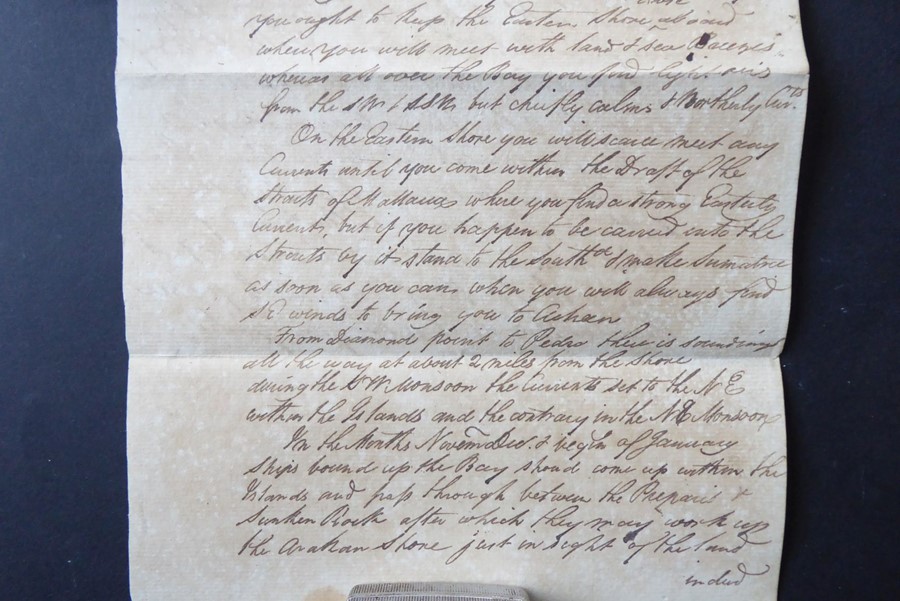 you ought to keep the Eastern Shore aboard
when you will meet with land & sea Breezes
whereas all over the Bay you find light airs
from the SW & SSW but chiefly calms & Northerly Curts
On the Eastern Shore you will scarce meet any
Currents until you come within the Draft of the
Straits of Mallacca where you find a strong Easterly
Current, but if you happen to be carried into the
Straits by it stand to the South'd & make Sumatra
as soon as you can when you will always find
SE winds to bring you to Achan
From Diamond point to Pedra there is soundings
all the way at about 2 miles from the shore
during the SW Monsoon the Currents set to the NE
within the Islands and the contrary in the NE Monsoon
In the Months Novem Dec. & begin of January
Ships bound up the Bay shoud come up within the
Islands and pass through between the Preparis &
Sunken Rock after which they may work up
the Arakan Shore just in sight of the land